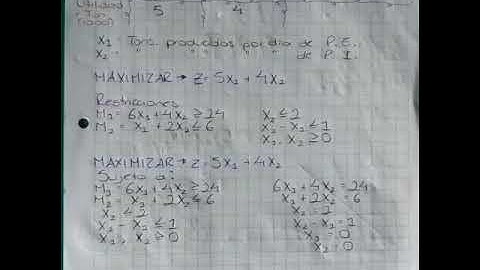 Utilidad 5 4
X₁ = Tons. producidas por día de P.E.
X₂ = " " " " de P.I.
MAXIMIZAR → Z = 5X₁ + 4X₂
Restricciones
M₁ = 6X₁ + 4X₂ ≥ 24 X₂ ≤ 2
M₂ = X₁ + 2X₂ ≤ 6 X₂ - X₁ ≤ 1
X₁, X₂ ≥ 0
MAXIMIZAR → Z = 5X₁ + 4X₂
Sujeto a:
M₁ = 6X₁ + 4X₂ ≥ 24 6X₁ + 4X₂ = 24
M₂ = X₁ + 2X₂ ≤ 6 X₁ + 2X₂ = 6
X₂ ≤ 2 X₂ = 2
X₂ - X₁ ≤ 1 X₂ - X₁ = 1
X₁, X₂ ≥ 0 X₁ = 0
X₂ = 0